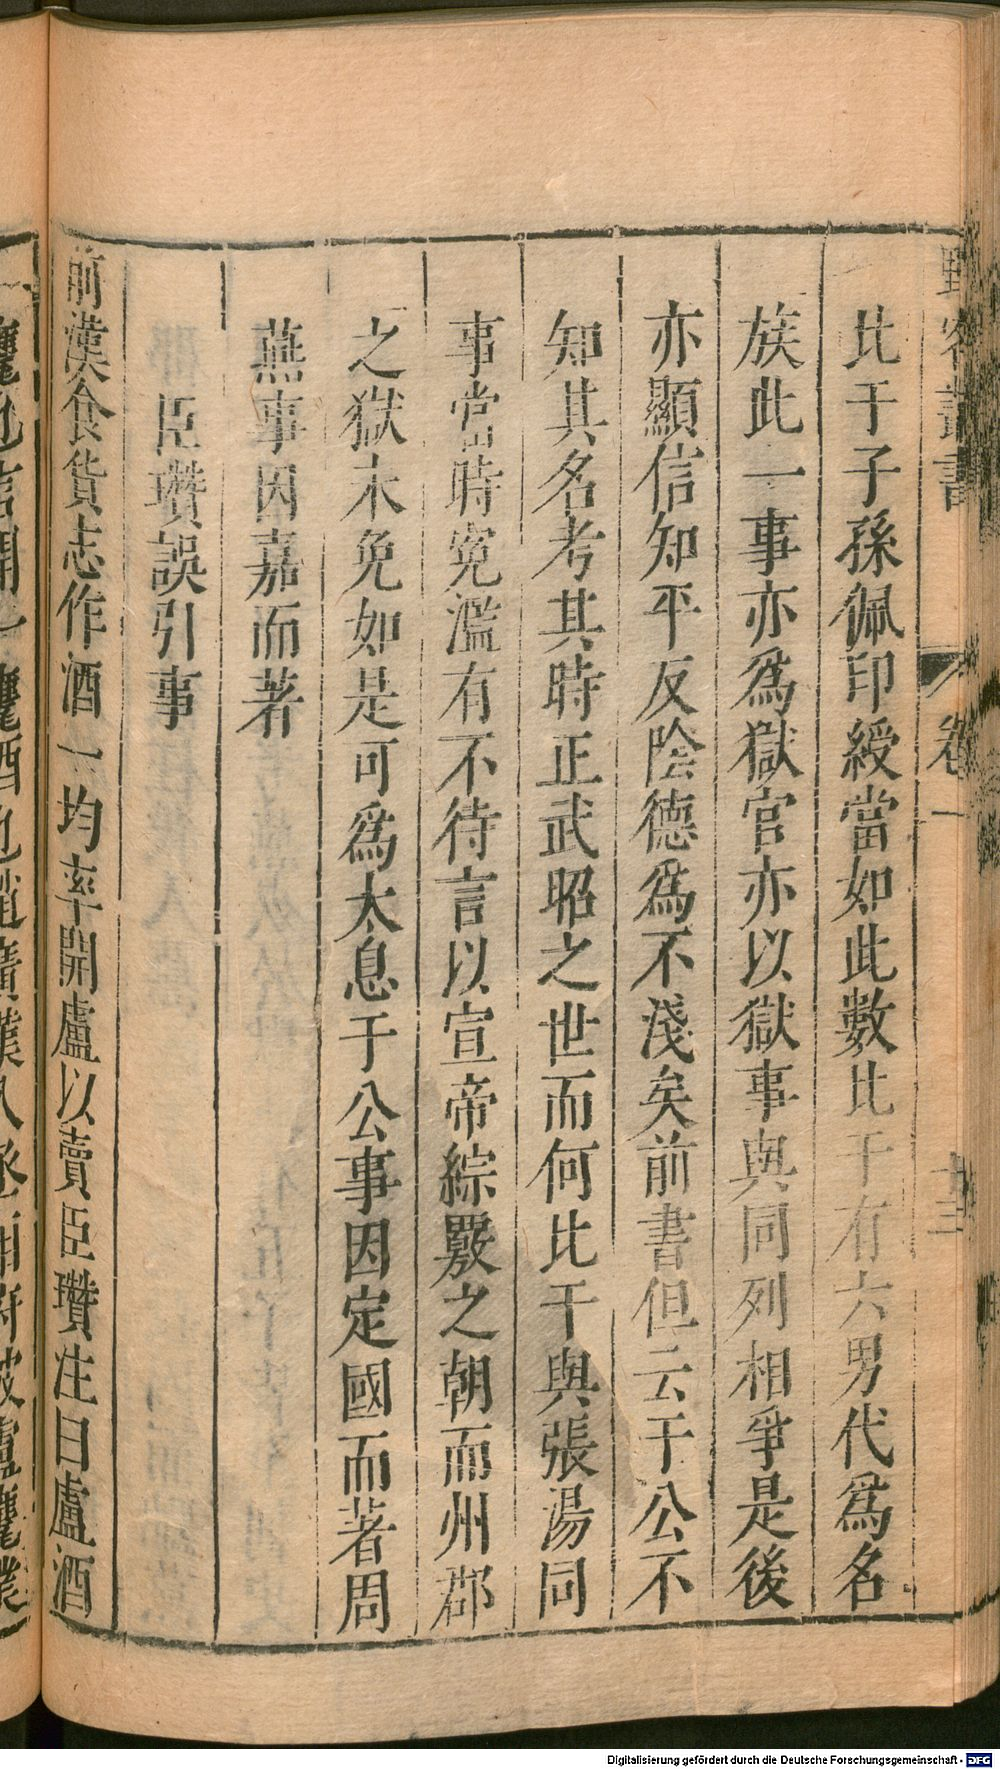 野客叢書 卷一 十三
比干子孫佩印綬當如此數比干有六男代爲名
族此一事亦爲獄官亦以獄事與同列相爭是後
亦顯信知平反陰德爲不淺矣前書但云于公不
知其名考其時正武昭之世而何比干與張湯同
事當時寃濫有不待言以宣帝綜覈之朝而州郡
之獄未免如是可爲太息于公事因定國而著周
燕事因嘉而著
臣瓚誤引事
前漢食貨志作酒一均率開盧以賣臣瓚注曰盧酒
Digitalisierung gefördert durch die Deutsche Forschungsgemeinschaft - DFG